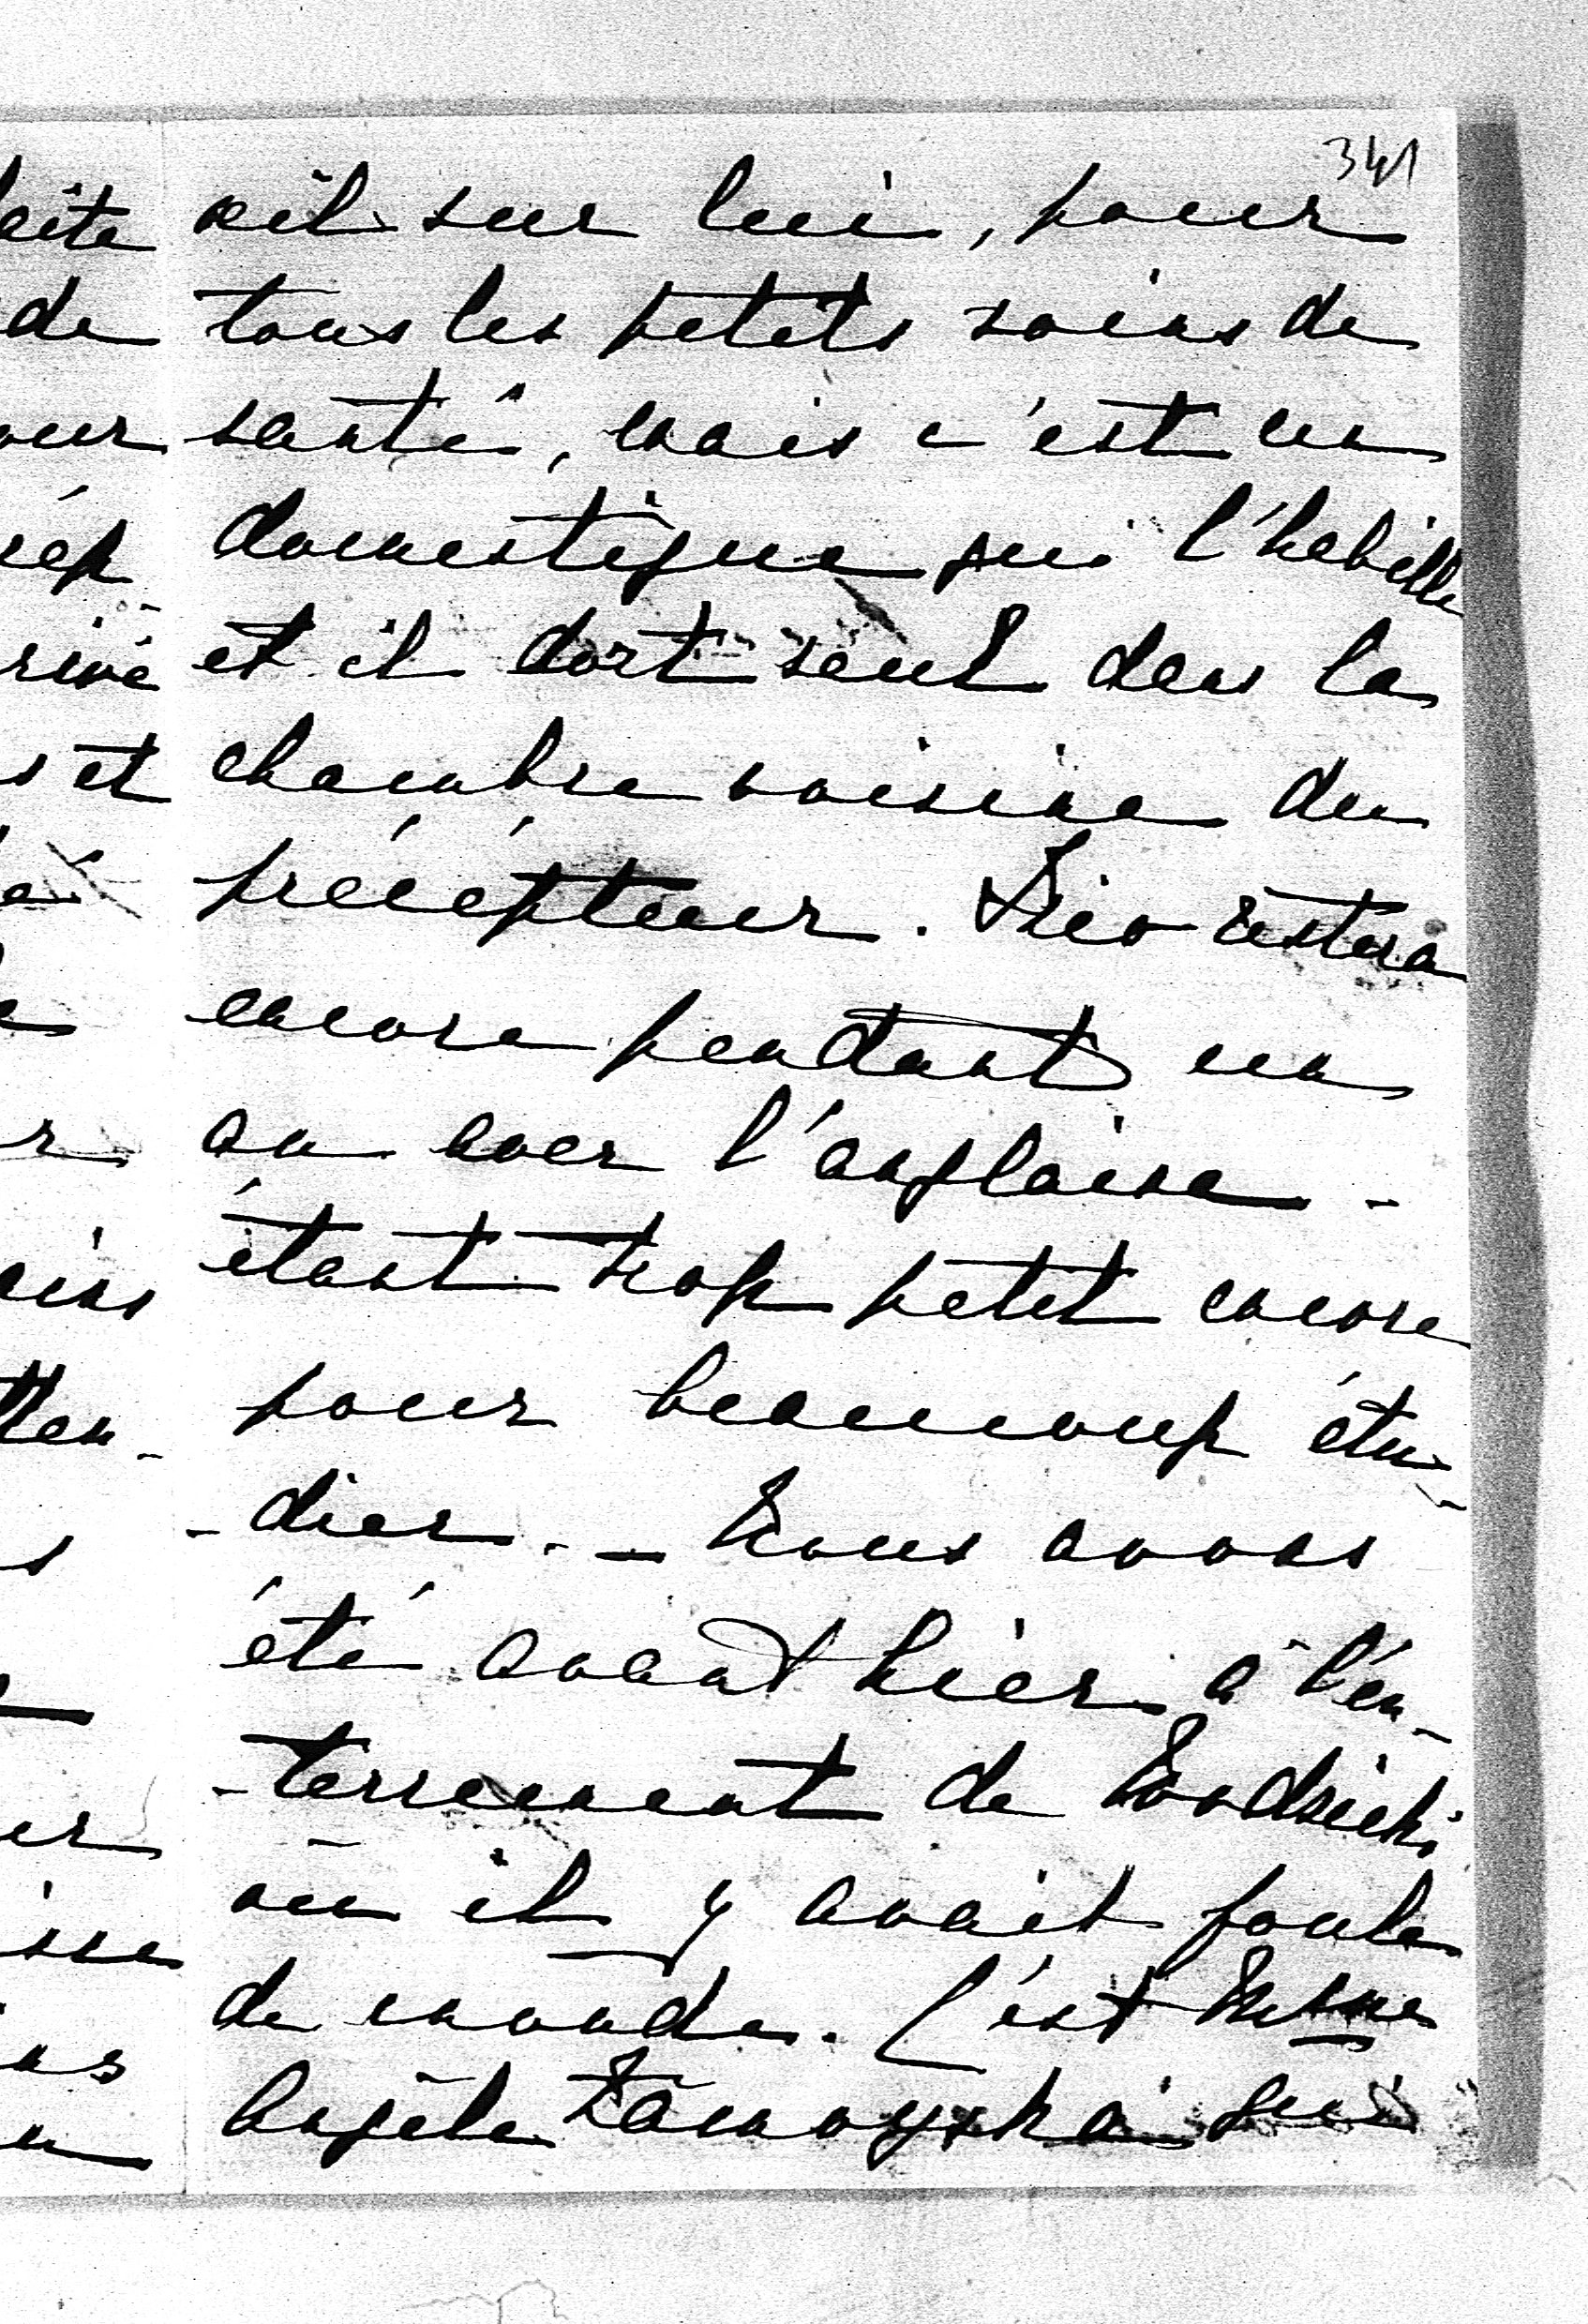 341
œil sur lui, pour
tous les petits soins de
santé, mais c'est un
domestique qui l'habille
et il dort seul dans la
chambre voisine du
précépteur. restera
encore pendant un
an avec l'anglaise -
étant trop petit encore
pour beaucoup étu-
-dier. - Nous avons
été avant hier à l'en-
-terrement de
où il y avait foule
de monde. C'est Mme
Angèle Zamoyska qui